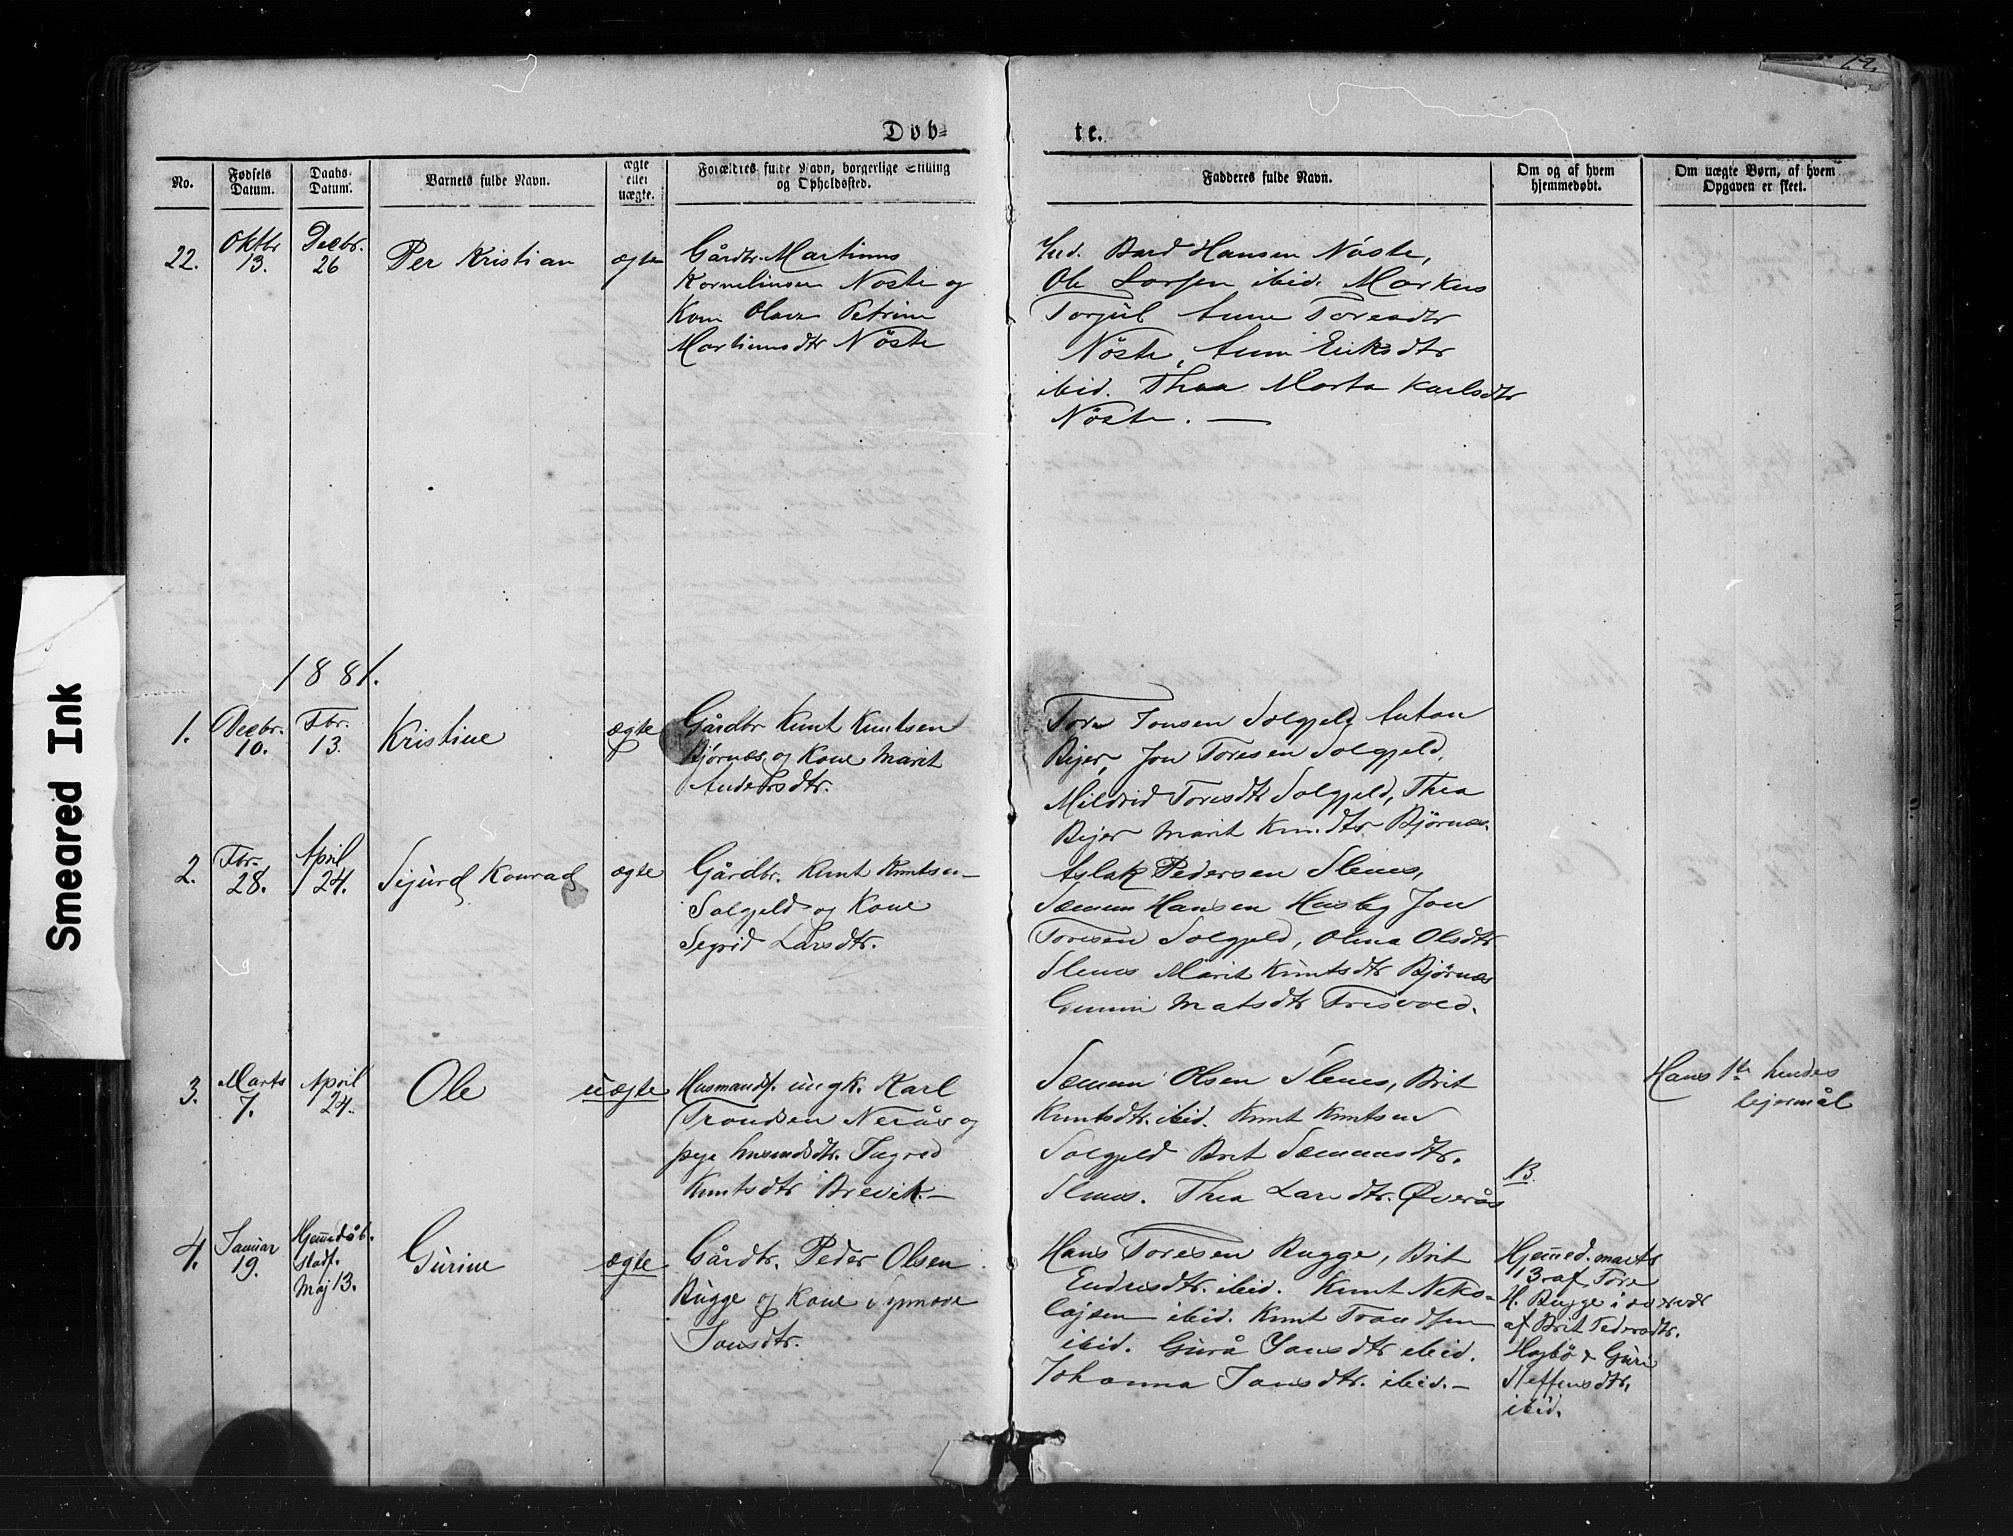 Døb=
te.
No.
Fødsels Datum.
Daabs-Datum.
Barnets fulde Navn.
ægte eller uægte.
Forældres fulde Navn, borgerlige Stilling og Opholdssted.
Fadderes fulde Navn.
Om og af hvem hjemmedøbt.
Om uægte Børn, af hvem Opgaven er skeet.
22.
Oktbr
13.
Decbr.
26
Per Kristian
ægte
Gårdbr. Martinus
Kornelinsen Nøste og
Kone Olava Petrine
Martinusdtr Nøste
Bard Hansen Nøste,
Ole Larsen ibid. Markus
Torjul Anne Toresdtr
Nøste, Anne Eriksdtr
ibid. Thea Marta Karlsdtr
Nøste. —
1881.
1.
Decbr.
10.
Fbr.
13.
Kristine
ægte
Gårdbr Knut Knutsen
Bjørnæs og Kone Marit
Andersdtr.
Tore Jonsen Solgjeld Anton
Bejer, Jon Toresen Solgjeld,
Mildrid Toresdtr Solgjeld, Thea
Bejer Marit Knudtr Bjørnæs.
2.
Fbr.
28.
April
24.
Sejurd Konrad
ægte
Gårdbr. Knut Knutsen
Solgjeld og Kone
Segrid Larsdtr.
Aslak Pedersen Slenes,
Sæmun Hansen Husby Jon
Toresen Solgjeld, Olina Olsdtr
Slenes Marit Knutsdtr Bjørnæs
Gunni Matsdtr Tresvold.
3.
Marts
7.
April
24.
Ole
uægte
Husmandsf. ungk. Karl
Trondsen Nerås og
pige husmdsdtr. Ingred
Knutsdtr Brevik. —
Sæmun Olsen Slenes, Brit
Knutsdtr. ibid. Knut Knutsen
Solgjeld Brit Sæmunsdtr.
Slenes. Thea Larsdtr. Øverås
B.
Hans 1te hendes
lejermål
4.
Januar
19.
Hjemmedåb
stadf.
Maj 13.
Gurine
ægte
Gårdbr. Peder Olsen
Bugge og Kone Synnøve
Jonsdtr.
Hans Toresen Bugge, Brit
Endresdtr. ibid. Knut Nekolajsen ibid. Knut Trondsen
ibid. Gurå Jonsdtr ibid.
Johanna Jansdtr. ibid. —
Hjemmed. marts
13 af Tore
H. Bugge i nærvær
af Brit Pedersdtr.
Hagbø & Guri
Steffensdtr,
ibid.
Smeared Ink